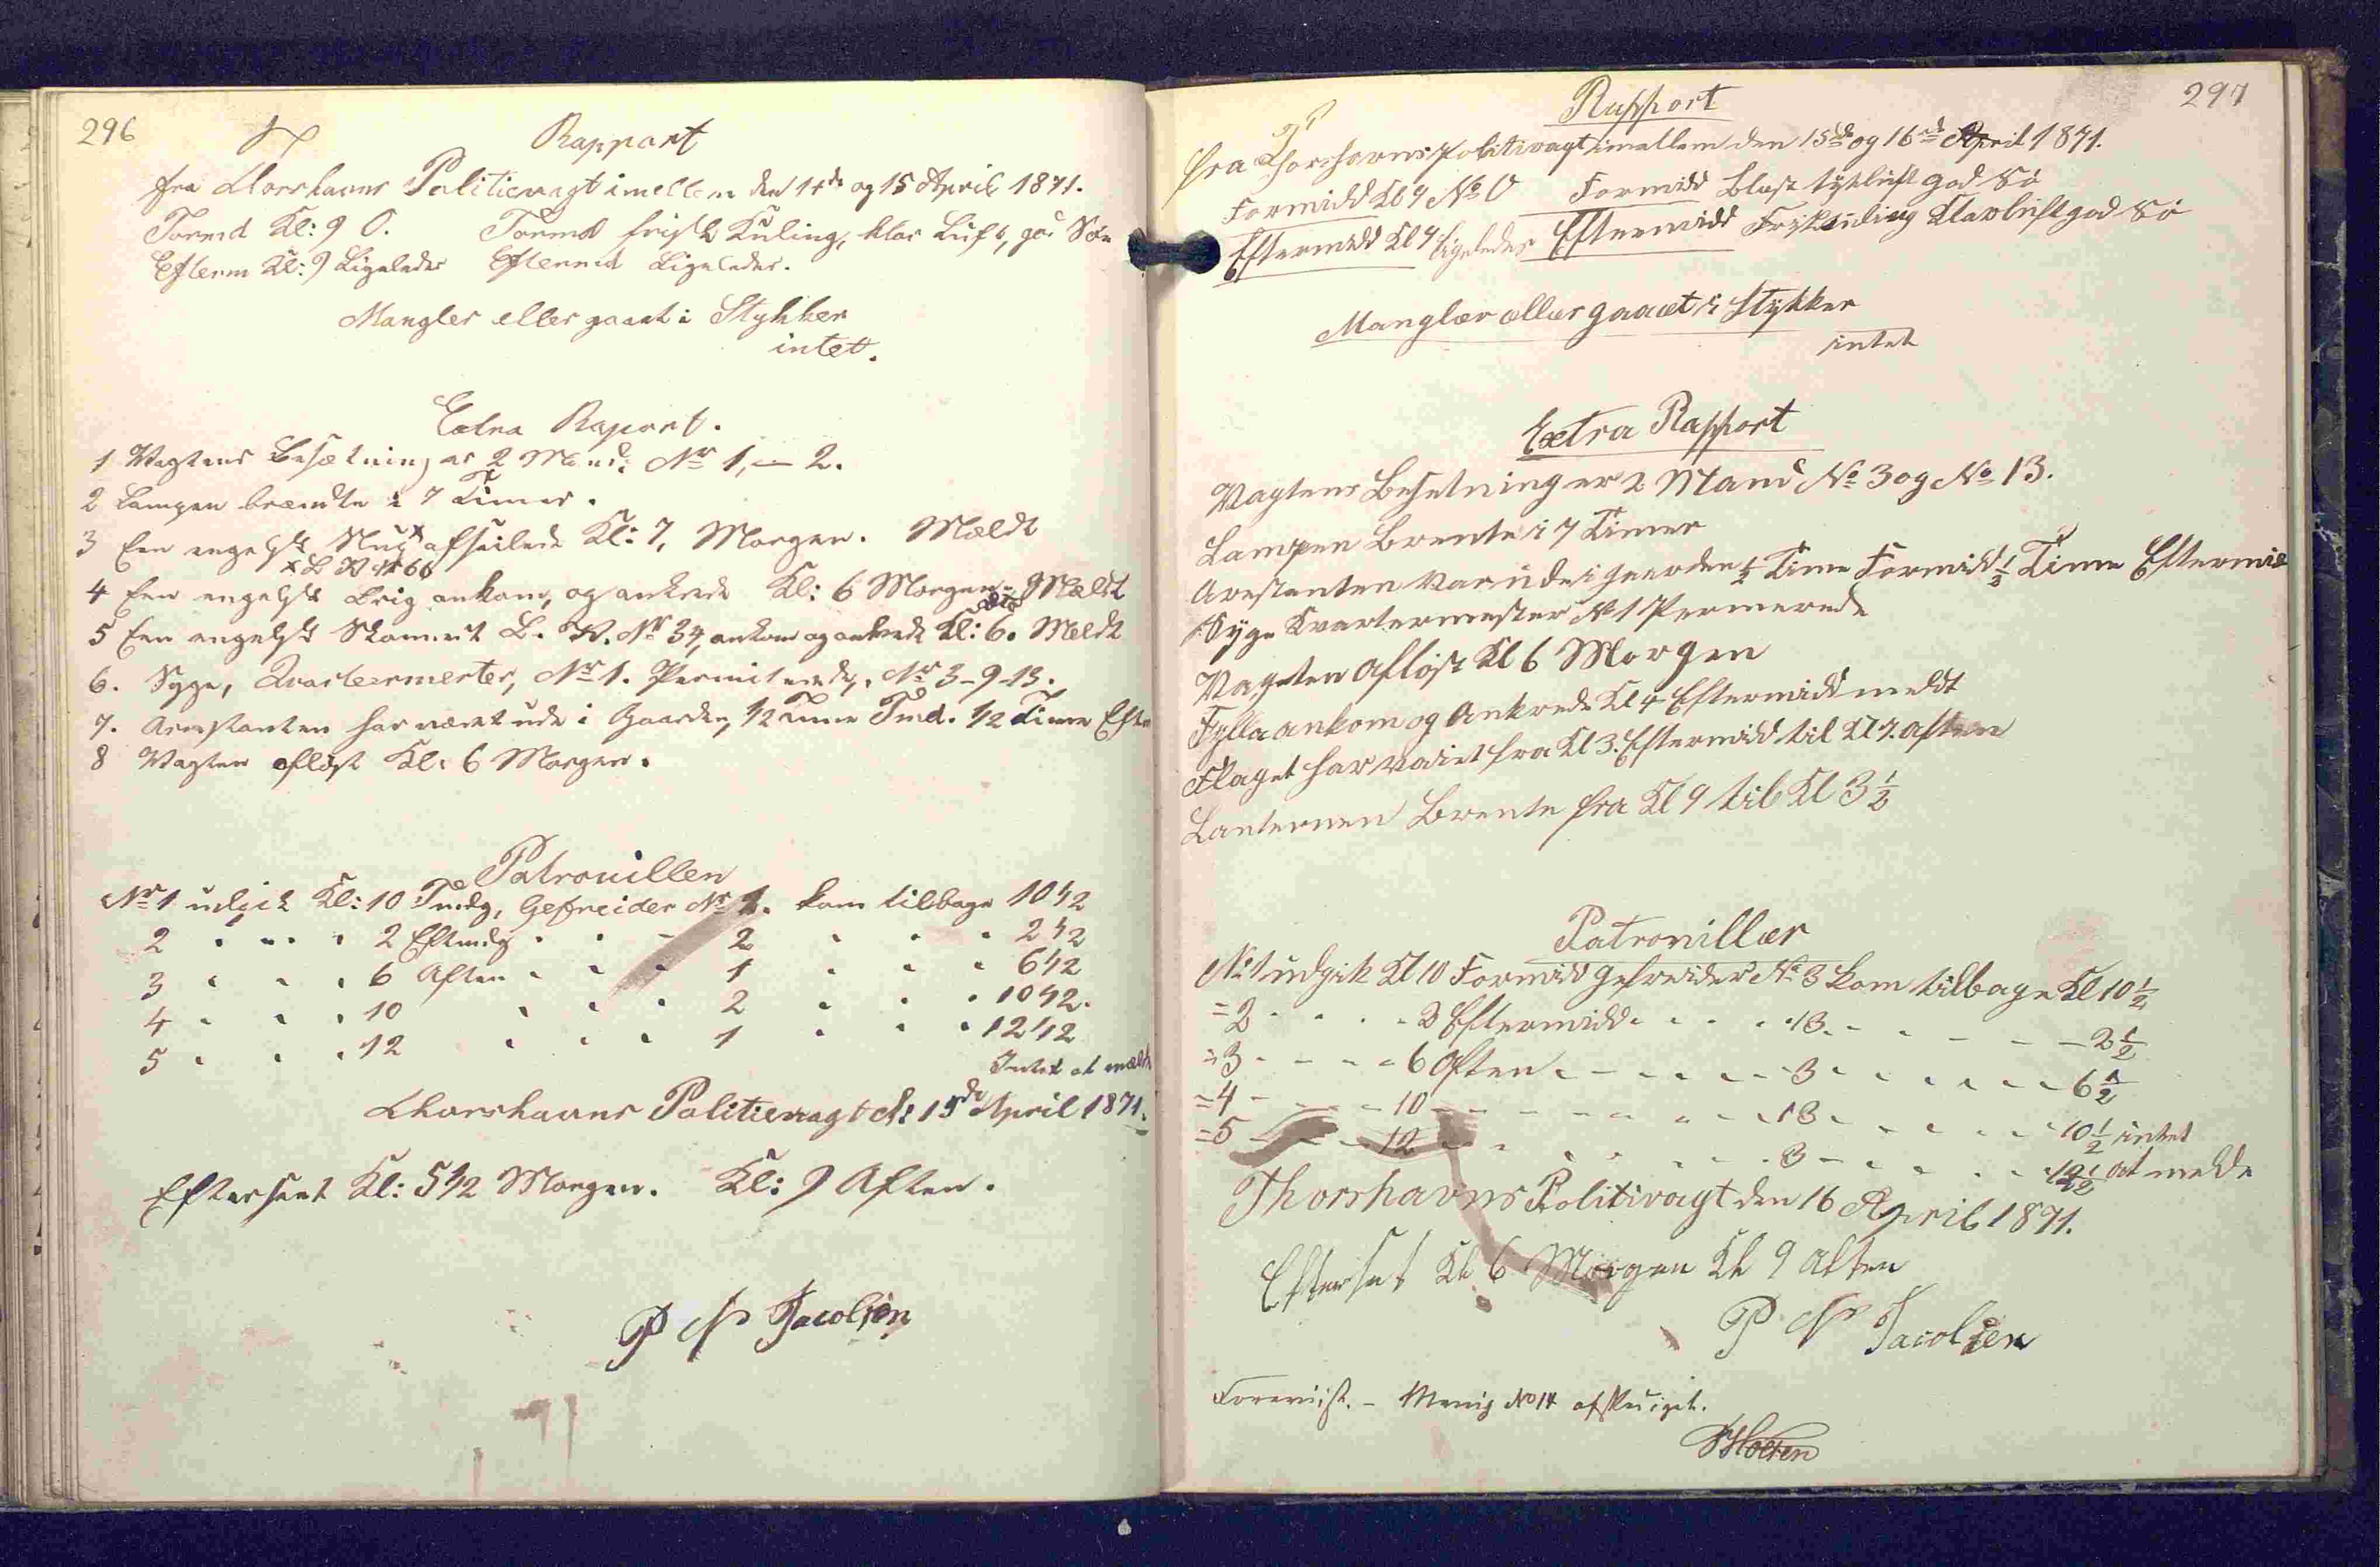 296
Rapport
fra Thorshavns Politievagt imellem den 14de og 15 April 1871.
Formd Kl: 9 0. Formd frisk Kuling, klar Luft, god Søe
Efterm Kl: 9 Ligeledes Eftermd Ligeledes.
Mangler eller gaaet i Stykker
intet.
Extra Raport.
1 Vagtens Besætning er 2 Mand: Nr 1, – 2.
2 Lampen brændte i 7 Timer.
3 Een engelsk afseilede Kl: 7, Morgen. Meldt
4 Een engelsk Brig ankom, og ankrede Kl: 6 Morgen Meldt
5 Een engelsk Skonnert L. K. Nr 34, ankom og ankrede Kl: 6. Meldt
6. Syge, Qvarteermester, Nr 1. Permiterede, Nr 3-9-13.
7. Arestanten har været ude i Gaarden, 1/2 Time Fmd. 1/2 Time Eft
8 Vagten afløst Kl: 6 Morgen.
Patrouillen
Nr 1 udgik Kl: 10 Fmdg, Gefreider Nr 1. kom tilbage 10 1/2
2 " " " 2 Eftmdg " " - 2 " " " 2 1/2
3 " " " 6 Aften " " " 1 " " " 6 1/2
4 " " " 10 " " " 2 " " " 10 1/2.
5 " " " 12 " " " 1 " " " 12 1/2
Intet at melde
Thorshavns Politievagt d: 15de April 1871.
Efterseet Kl: 5 1/2 Morgen. Kl: 9 Aften.
P N Jacobsen
297
Rapport
fra Thorshavns Politivagt imellem den 15de og 16de April 1871.
Formidd Kl 9 No 0 Formidd Blæst tykluft god Sö
Eftermidd Kl 9 ligeledes Eftermidd Friskuling Klarluft god Sö
Manglær ællær gaaæt i Stykker
intet
Extra Rapport
Vagtens Besetning er 2 Mand No 3 og No 13.
Lampen Brente i 7 Timer
Arestanten var ude i gaarden 1/2 Time Formidd 1/2 Time Eftermid
Syge Kvartermester No 1 Permerede
Vagten aflöst Kl 6 Morgen
Fylla ankom og Ankrede Kl 4 Eftermidd meldt
Flaget har vaiet fra Kl 3. Eftermidd til Kl 7. aften
Lanternen Brente fra Kl 9 til Kl 3 1/2
Patrouillær
No 1 udgik Kl 10 Formidd gefreider No 3 kom tilbage Kl 10 1/2
= 2 - - - - 2 Eftermidd - - - - 13 - - - - - 2 1/2
= 3 - - - - 6 Aften - - - - - 3 - - - - - 6 1/2
= 4 - - - - 10 - - - - - - 13 - - - - - 10 1/2 intet
= 5 - - - - 12 - - - - - - 3 - - - - - 12 1/2 at melde
Thorshavns Politivagt den 16 April 1871.
Efterset Kl 6 Morgen Kl 9 Aften
P N Jacobsen
Foreviist. – Menig No 14 afskediget.
HHolten